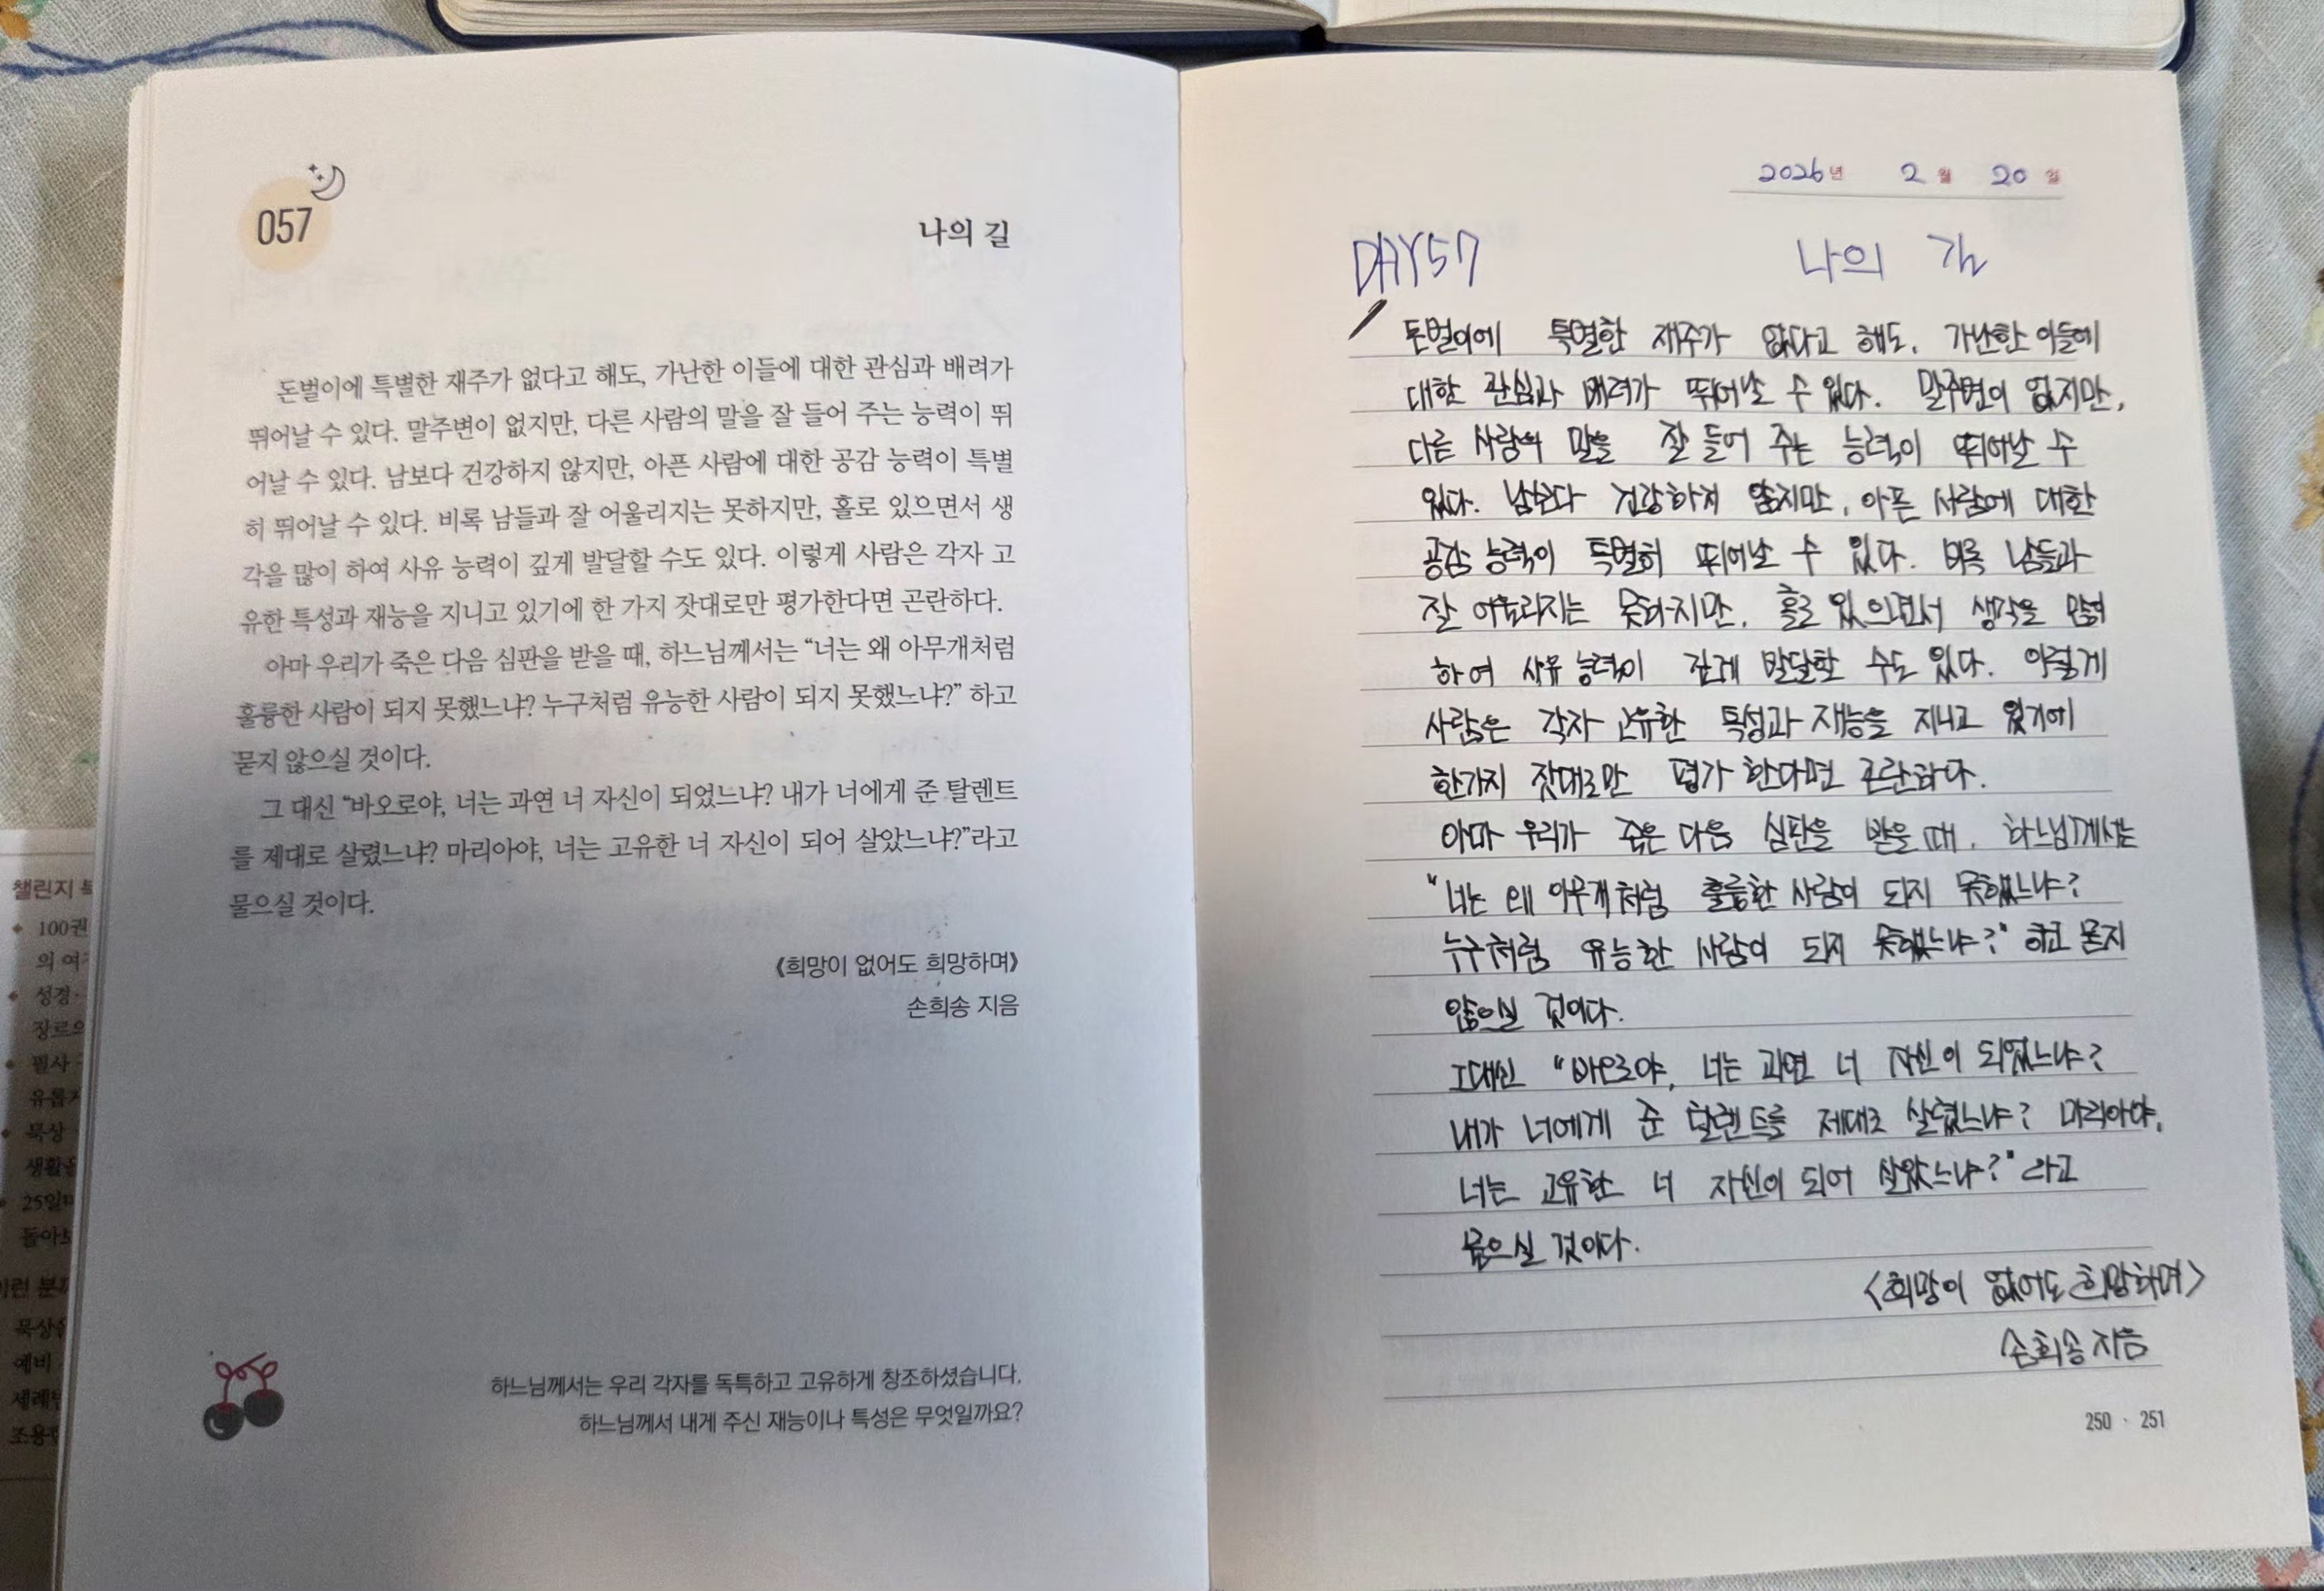 057
나의 길
돈벌이에 특별한 재주가 없다고 해도, 가난한 이들에 대한 관심과 배려가
뛰어날 수 있다. 말주변이 없지만, 다른 사람의 말을 잘 들어 주는 능력이 뛰
어날 수 있다. 남보다 건강하지 않지만, 아픈 사람에 대한 공감 능력이 특별
히 뛰어날 수 있다. 비록 남들과 잘 어울리지는 못하지만, 홀로 있으면서 생
각을 많이 하여 사유 능력이 깊게 발달할 수도 있다. 이렇게 사람은 각자 고
유한 특성과 재능을 지니고 있기에 한 가지 잣대로만 평가한다면 곤란하다.
아마 우리가 죽은 다음 심판을 받을 때, 하느님께서는 “너는 왜 아무개처럼
훌륭한 사람이 되지 못했느냐? 누구처럼 유능한 사람이 되지 못했느냐?” 하고
묻지 않으실 것이다.
그 대신 “바오로야, 너는 과연 너 자신이 되었느냐? 내가 너에게 준 탈렌트
를 제대로 살렸느냐? 마리아야, 너는 고유한 너 자신이 되어 살았느냐?”라고
물으실 것이다.
《희망이 없어도 희망하며》
손희송 지음
하느님께서는 우리 각자를 독특하고 고유하게 창조하셨습니다.
하느님께서 내게 주신 재능이나 특성은 무엇일까요?
챌린지
100권
의 여
성경·
장르의
필사
묵상
25일
2026년 2월 20일
DAY57 나의 길
돈벌이에 특별한 재주가 없다고 해도, 가난한 이들에
대한 관심과 배려가 뛰어날 수 있다. 말주변이 없지만,
다른 사람의 말을 잘 들어 주는 능력이 뛰어날 수
있다. 남보다 건강하지 않지만, 아픈 사람에 대한
공감 능력이 특별히 뛰어날 수 있다. 비록 남들과
잘 어울리지는 못하지만, 홀로 있으면서 생각을 많이
하여 사유 능력이 깊게 발달할 수도 있다. 이렇게
사람은 각자 고유한 특성과 재능을 지니고 있기에
한가지 잣대로만 평가 한다면 곤란하다.
아마 우리가 죽은 다음 심판을 받을 때, 하느님께서는
"너는 왜 아무개처럼 훌륭한 사람이 되지 못했느냐?
누구처럼 유능한 사람이 되지 못했느냐?" 하고 묻지
않으실 것이다.
그대신 "바오로야, 너는 과연 너 자신이 되었느냐?
내가 너에게 준 탈렌트를 제대로 살렸느냐? 마리아야,
너는 고유한 너 자신이 되어 살았느냐?"라고
물으실 것이다.
<희망이 없어도 희망하며>
손희송 지음
250 · 251